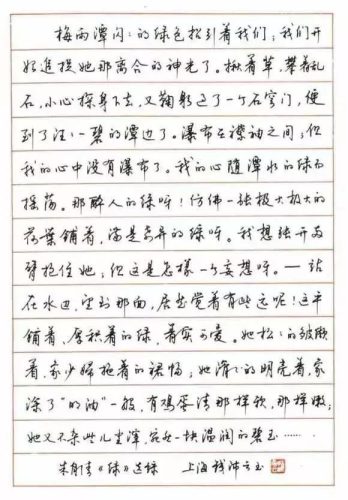 梅雨潭闪:的绿色招引着我们;我们开
始追捉她那离合的神光了。揪着草,攀着乱
石,小心探身下去,又鞠躬过了一个石穹门,便
到了汪:一碧的潭边了。瀑布在襟袖之间;但
我的心中没有瀑布了。我的心随潭水的绿而
摇荡。那醉人的绿呀!仿佛一张极大极大的
荷叶铺着,满是奇异的绿呀。我想张开两
臂抱住她;但这是怎样一个妄想呀。—站
在水边,望到那面,居然觉着有些远呢!这平
铺着,厚积着的绿,着实可爱。她松:的皱缬
着,象少妇拖着的裙幅;她滑:的明亮着,象
涂了"的油"一般,有鸡蛋清那样软,那样嫩;
她又不杂些儿尘滓,宛然一块温润的碧玉……
朱自清《绿》选录 上海 钱沛云书